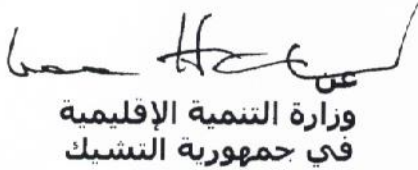 عن
وزارة التنمية الإقليمية
في جمهورية التشيك